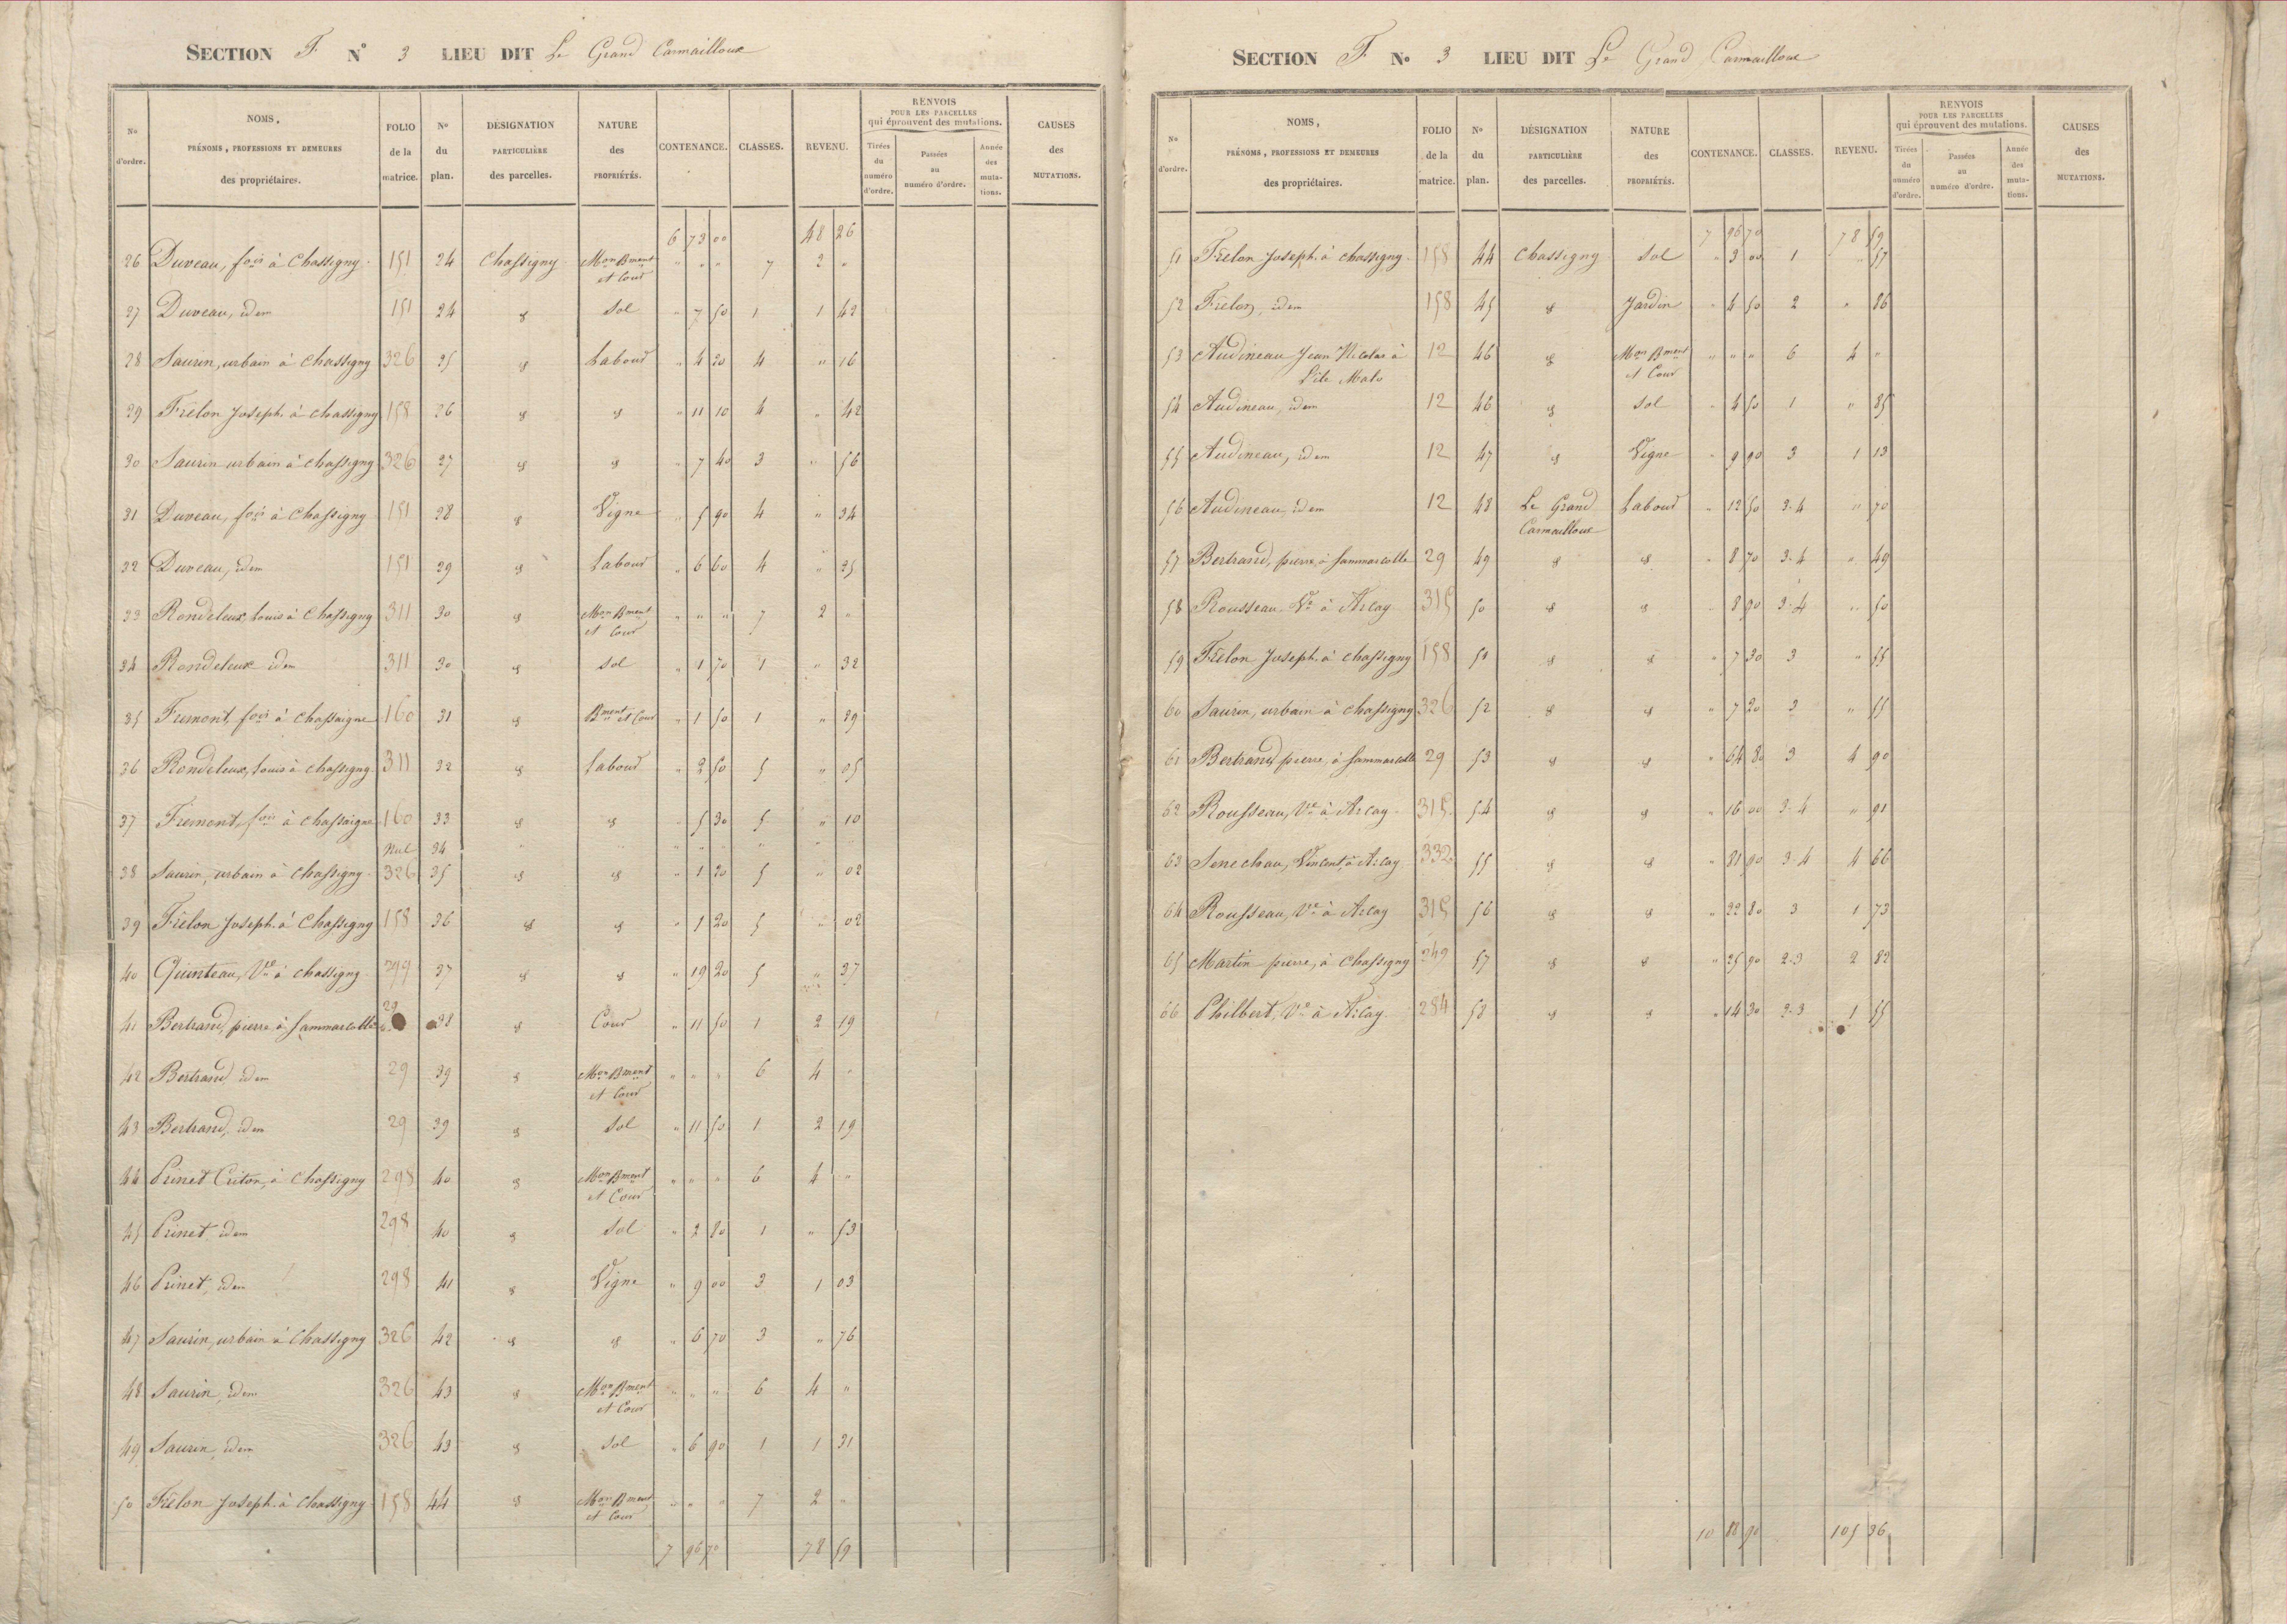 SECTION F. N° 3 LIEU DIT Le Grand Carmailloux
N° d'ordre. NOMS, PRÉNOMS, PROFESSIONS ET DEMEURES des propriétaires. FOLIO de la matrice. N° du plan. DÉSIGNATION PARTICULIÈRE des parcelles. NATURE des PROPRIÉTÉS. CONTENANCE. CLASSES. REVENU. RENVOIS POUR LES PARCELLES qui éprouvent des mutations. Tirées du numéro d'ordre. Passées au numéro d'ordre. Année des mutations. CAUSES des MUTATIONS.
6 73 00 48 26
26 Duveau, fois à Chassigny 151 24 Chassigny Mon Bment et Cour " " " 7 2 "
27 Duveau, idem 151 24 id Sol " 7 50 1 1 42
28 Saurin, urbain à Chassigny 326 25 id Labour " 4 20 4 " 16
29 Frélon Joseph à Chassigny 158 26 id id " 11 10 4 " 42
30 Saurin urbain à Chassigny 326 27 id id " 7 40 3 " 56
31 Duveau, fois à Chassigny 151 28 id Vigne " 5 90 4 " 34
32 Duveau, idem 151 29 id Labour " 6 60 4 " 25
33 Rondeleux, Louis à Chassigny 311 30 id Mon Bment et Cour " " " 7 2 "
34 Rondeleux idem 311 30 id Sol " 1 70 1 " 32
35 Fremont, fois à Chassaigne 160 31 id Bment et Cour " 1 50 1 " 29
36 Rondeleux, Louis à Chassigny 311 32 id Labour " 2 50 5 " 05
37 Fremont, fois à Chassaigne 160 33 id id " 5 30 5 " 10
Nul 34 " " " " " " "
38 Saurin, urbain à Chassigny 326 35 id id " 1 20 5 " 02
39 Frélon Joseph à Chassigny 158 36 id id " 1 20 5 " 02
40 Quinteau, Ve à Chassigny 299 37 id id " 19 20 5 " 37
41 Bertrand, pierre à Sammarcolle 29 38 id Cour " 11 50 1 2 19
42 Bertrand idem 29 39 id Mon Bment et Cour " " " 6 4 "
43 Bertrand, idem 29 39 id Sol " 11 50 1 2 19
44 Prinet Criton, à Chassigny 298 40 id Mon Bment et Cour " " " 6 4 "
45 Prinet, idem 298 40 id Sol " 2 80 1 " 53
46 Prinet, idem 298 41 id Vigne " 9 00 3 1 03
47 Saurin, urbain à Chassigny 326 42 id id " 6 70 3 " 76
48 Saurin, idem 326 43 id Mon Bment et Cour " " " 6 4 "
49 Saurin, idem 326 43 id Sol " 6 90 1 1 31
50 Frélon Joseph à Chassigny 158 44 id Mon Bment et Cour " " " 7 2 "
7 96 70 78 59
SECTION F. N° 3 LIEU DIT Le Grand Carmailloux
N° d'ordre. NOMS, PRÉNOMS, PROFESSIONS ET DEMEURES des propriétaires. FOLIO de la matrice. N° du plan. DÉSIGNATION PARTICULIÈRE des parcelles. NATURE des PROPRIÉTÉS. CONTENANCE. CLASSES. REVENU. RENVOIS POUR LES PARCELLES qui éprouvent des mutations. Tirées du numéro d'ordre. Passées au numéro d'ordre. Année des mutations. CAUSES des MUTATIONS.
7 96 70 78 59
51 Frélon Joseph à Chassigny 158 44 Chassigny Sol " 3 00 1 " 57
52 Frélon, idem 158 45 id Jardin " 4 50 2 " 86
53 Audineau Jean Nicolas à l'ile Malo 12 46 id Mon Bment et Cour " " " 6 4 "
54 Audineau, idem 12 46 id Sol " 4 50 1 " 85
55 Audineau, idem 12 47 id Vigne " 9 90 3 1 13
56 Audineau, idem 12 48 Le Grand Carmailloux Labour " 12 50 3.4 " 70
57 Bertrand, pierre, à Sammarcolle 29 49 id id " 8 70 3.4 " 49
58 Rousseau Ve à Arcay 315 50 id id " 8 90 3.4 " 50
59 Frélon Joseph à Chassigny 158 51 id id " 7 30 3 " 55
60 Saurin, urbain à Chassigny 326 52 id id " 7 20 3 " 55
61 Bertrand, pierre, à Sammarcolle 29 53 id id " 64 80 3 4 90
62 Rousseau, Ve à Arcay 315 54 id id " 16 00 3.4 " 91
63 Senechau, Vincent, à Arcay 332 55 id id " 81 90 3.4 4 66
64 Rousseau, Ve à Arcay 315 56 id id " 22 80 3 1 73
65 Martin pierre, à Chassigny 249 57 id id " 25 90 2.3 2 82
66 Philbert, Ve à Arcay 284 58 id id " 14 30 2.3 1 55
10 88 90 105 36